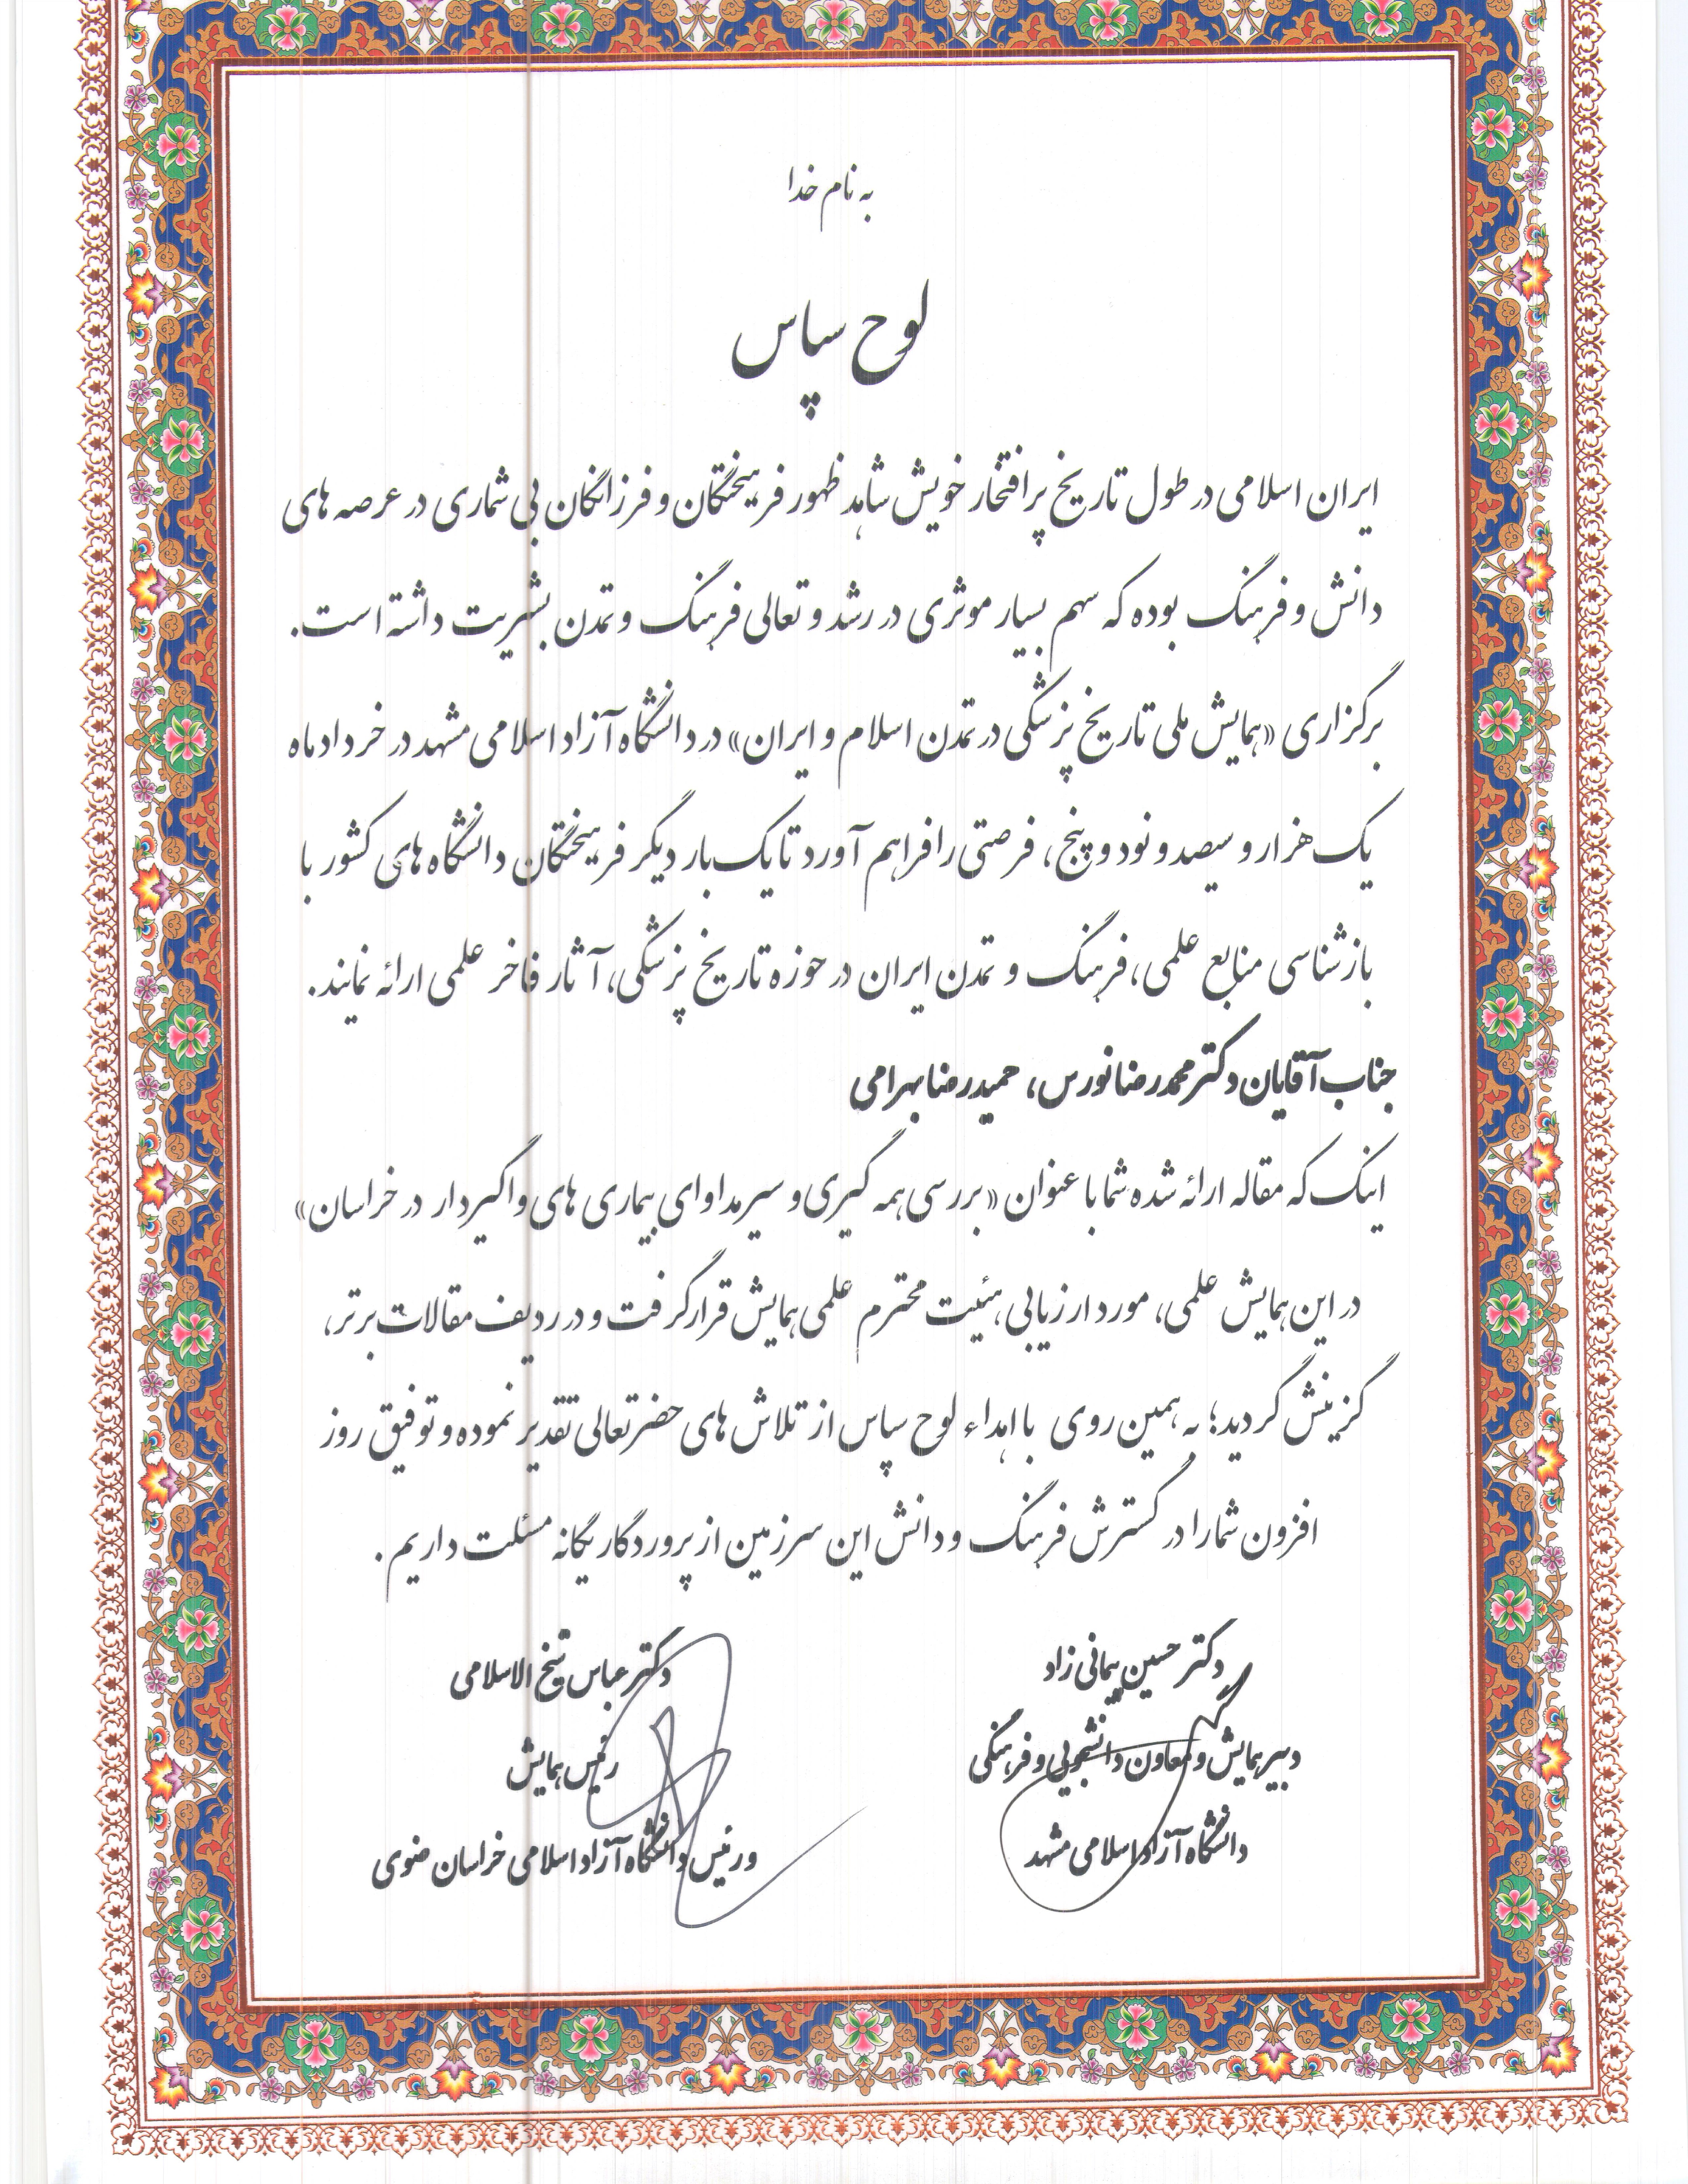 به نام خدا
لوح سپاس
ایران اسلامی در طول تاریخ پرافتخار خویش شاهد ظهور فرهیختگان و فرزانگان بی شماری در عرصه های
دانش و فرهنگ بوده که سهم بسیار موثری در رشد و تعالی فرهنگ و تمدن بشریت داشته است.
برگزاری «همایش ملی تاریخ پزشکی در تمدن اسلام و ایران» در دانشگاه آزاد اسلامی مشهد در خرداد ماه
یک هزار و سیصد و نود و پنج، فرصتی را فراهم آورد تا یک بار دیگر فرهیختگان دانشگاه های کشور با
بازشناسی منابع علمی، فرهنگ و تمدن ایران در حوزه تاریخ پزشکی، آثار فاخر علمی ارائه نمایند.
جناب آقایان دکتر محمدرضا نورس، حمیدرضا بهرامی
اینک که مقاله ارائه شده شما با عنوان «بررسی همه گیری و سیر مداوای بیماری های واگیردار در خراسان»
در این همایش علمی، مورد ارزیابی هئیت محترم علمی همایش قرار گرفت و در ردیف مقالات برتر،
گزینش گردید؛ به همین روی با اهداء لوح سپاس از تلاش های حضرتعالی تقدیر نموده و توفیق روز
افزون شما را در گسترش فرهنگ و دانش این سرزمین از پروردگار یگانه مسئلت داریم.
دکتر حسین پیمانی زاد
دبیر همایش و معاون دانشجویی و فرهنگی
دانشگاه آزاد اسلامی مشهد
دکتر عباس شیخ الاسلامی
رئیس همایش
و رئیس دانشگاه آزاد اسلامی خراسان رضوی